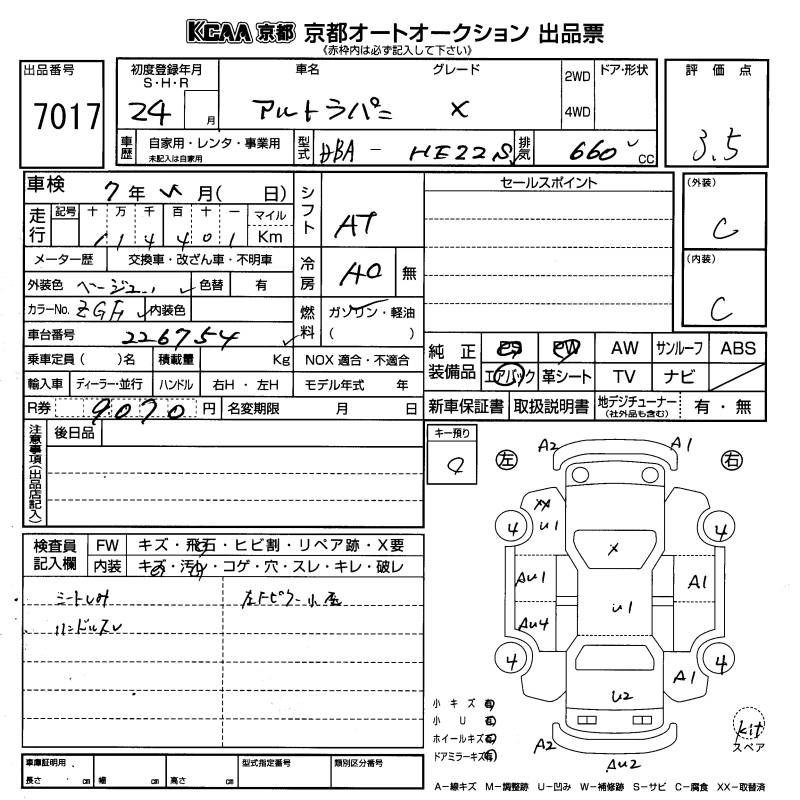 KCAA 京都 京都オートオークション 出品票
《赤枠内は必ず記入して下さい》
出品番号
7017
初度登録年月
S・H・R
24 月
車名 グレード
アルトラパン X
2WD
4WD
ドア・形状
車歴 自家用・レンタ・事業用
未記入は自家用
型式 DBA - HE22S
排気 660 cc
評価点
3.5
車検 7年 月( 日)
走行 記号 十 万 千 百 十 一 マイル
114401 Km
メーター歴 交換車・改ざん車・不明車
外装色 ベージュ 色替 有
カラーNo. ZGH 内装色
車台番号 226754
乗車定員( )名 積載量 Kg NOX 適合・不適合
輸入車 ディーラー・並行 ハンドル 右H・左H モデル年式 年
R券 9070 円 名変期限 月 日
シフト AT
冷房 AC 無
燃料 ガソリン・軽油
( )
セールスポイント
(外装)
C
(内装)
C
純正装備品 PS PW AW サンルーフ ABS
エアバック 革シート TV ナビ
新車保証書 取扱説明書 地デジチューナー 有・無
(社外品も含む)
注意事項(出品店記入) 後日品
キー預り
検査員記入欄 FW キズ・飛石・ヒビ割・リペア跡・X要
内装 キズ・汚れ・コゲ・穴・スレ・キレ・破レ
シートしみ
ハンドルスレ
左 右
A2 A1
XX
U1
4 4
X
AU1 A1
U1
AU4
4 4
A1
U2
A2 AU2
小キズ有
小U有
ホイールキズ有
ドアミラーキズ有
kit
スペア
車庫証明用 型式指定番号 類別区分番号
長さ cm 幅 cm 高さ cm
A-線キズ M-調整跡 U-凹み W-補修跡 S-サビ C-腐食 XX-取替済